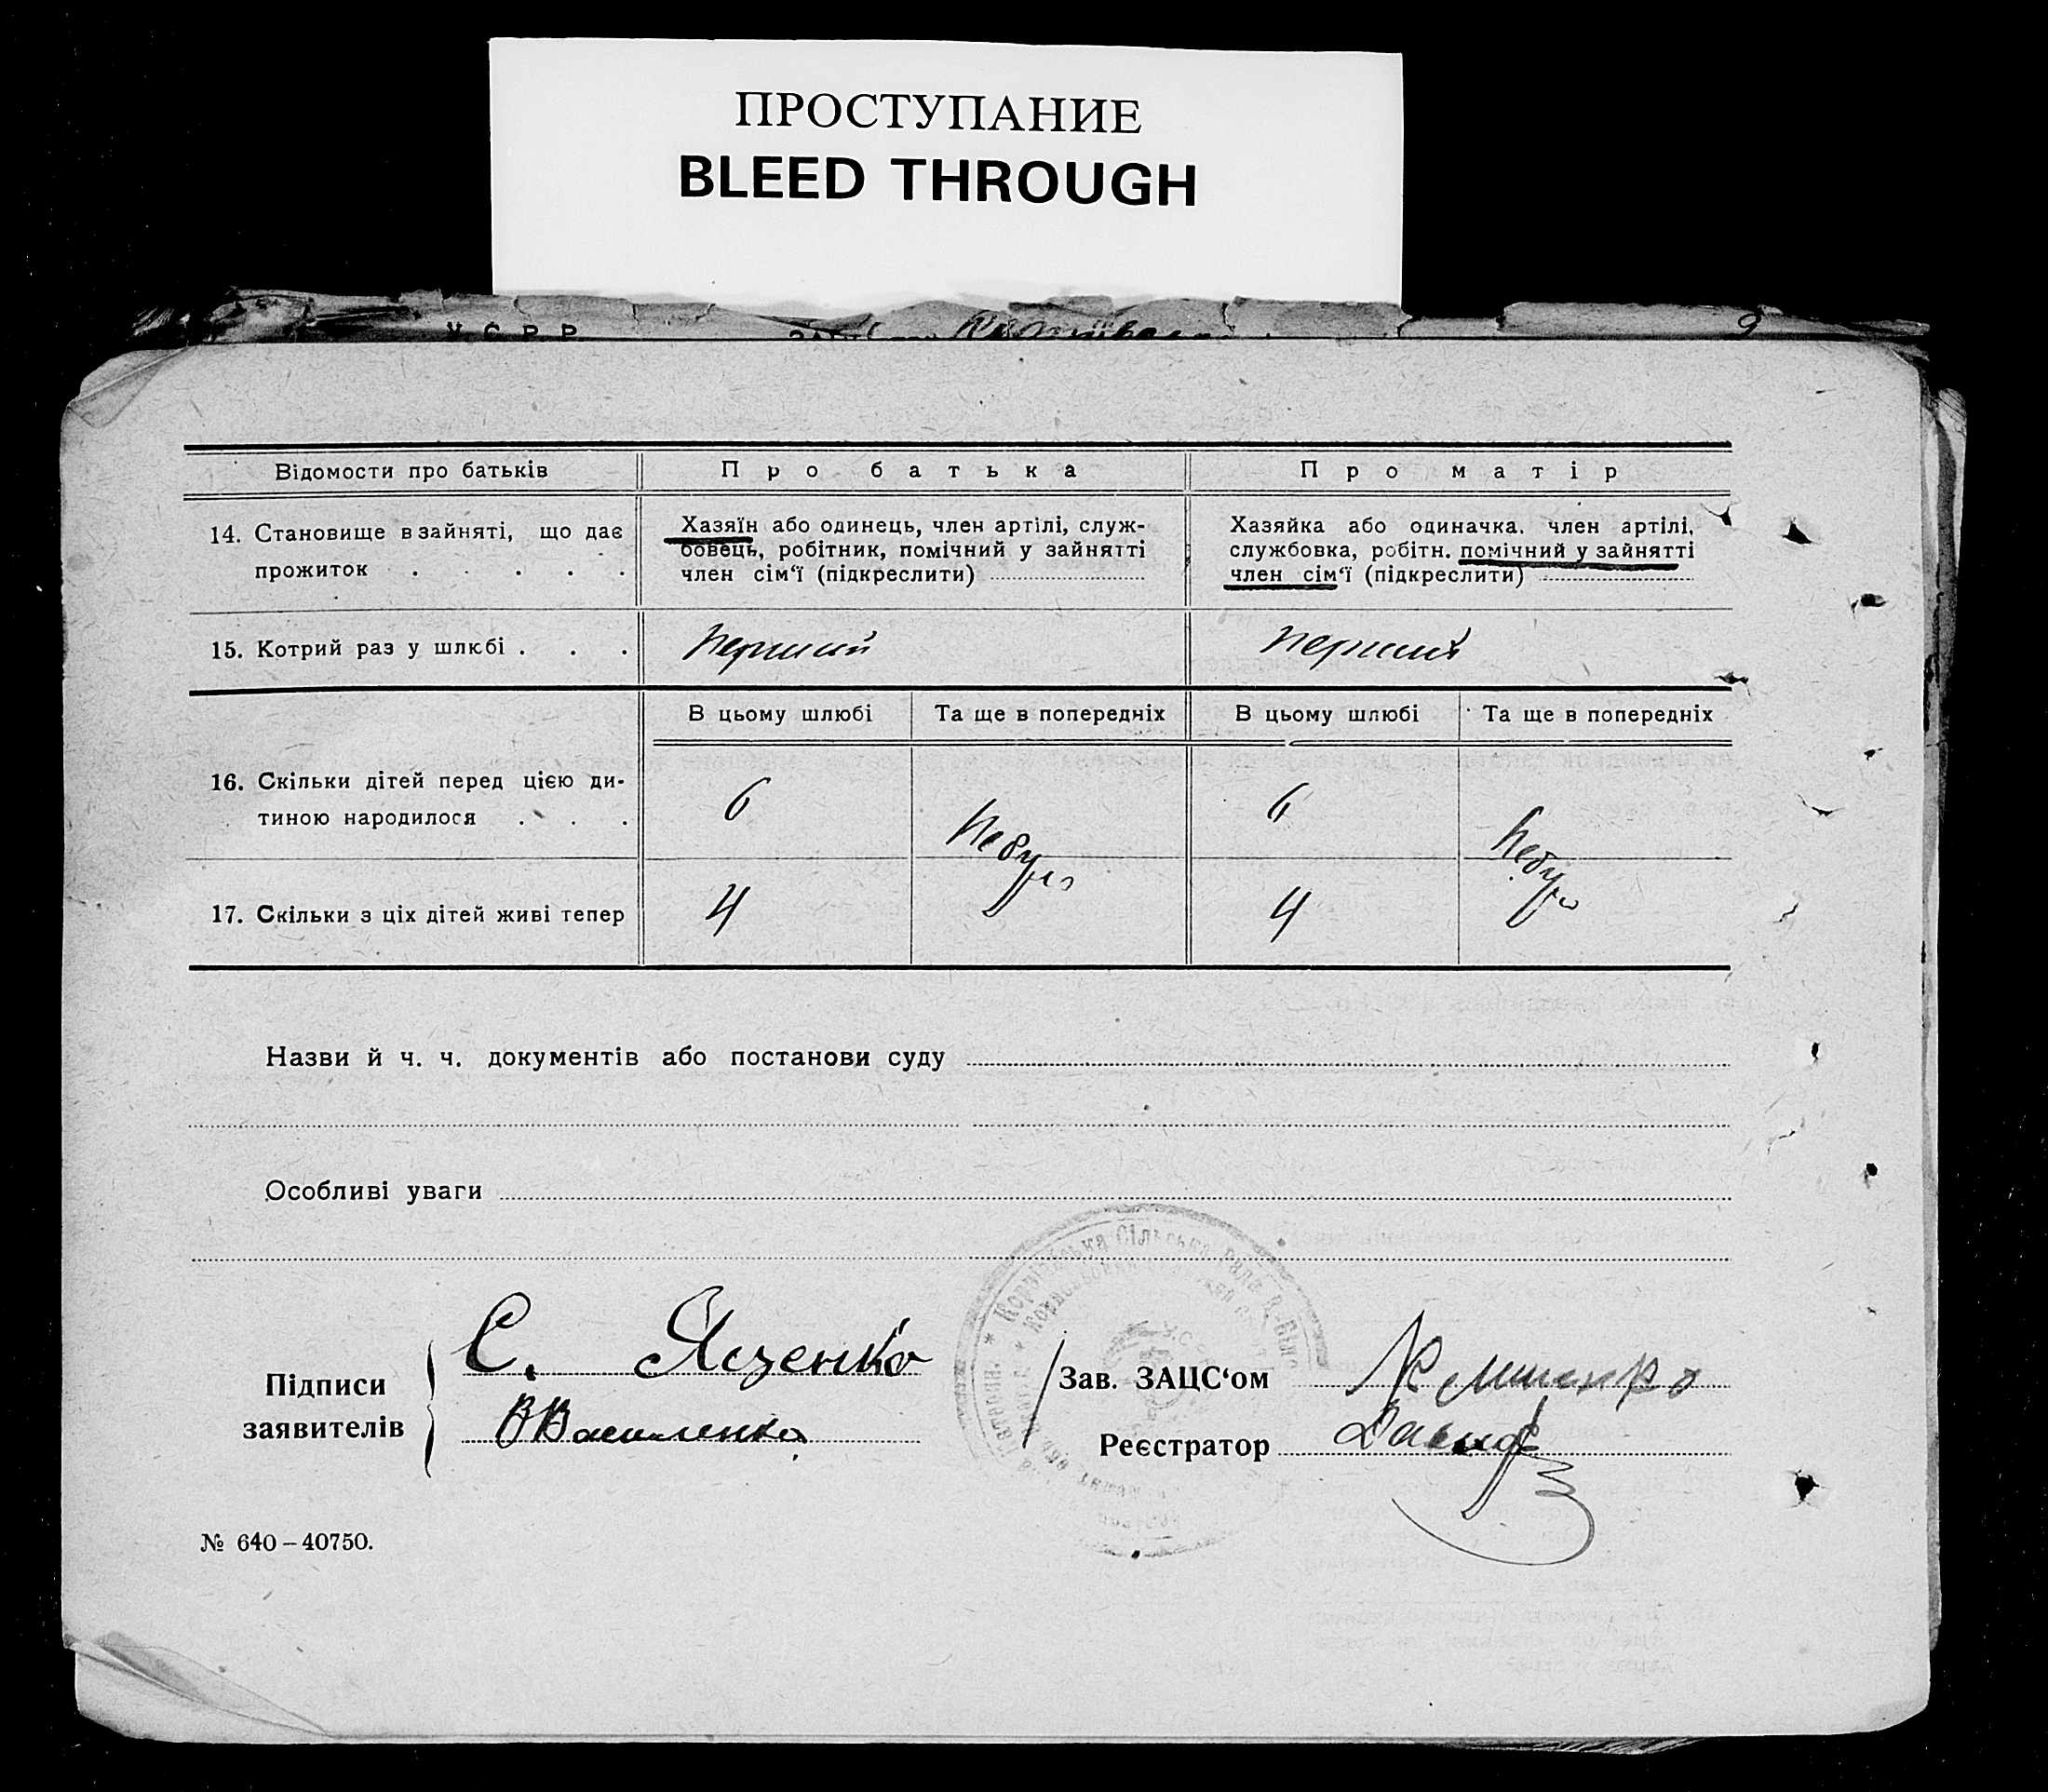 ПРОСТУПАНИЕ
BLEED THROUGH
У. С. Р. Р.
9
Відомости про батьків Про батька Про матір
14. Становище в зайняті, що дає
прожиток . . . . .
Хазяїн або одинець, член артілі, служ-
бовець, робітник, помічний у зайнятті
член сім'ї (підкреслити)
Хазяйка або одиначка, член артілі,
службовка, робітн. помічний у зайнятті
член сім'ї (підкреслити)
15. Котрий раз у шлюбі . . . перший перший
В цьому шлюбі Та ще в попередніх В цьому шлюбі Та ще в попередніх
16. Скільки дітей перед цією ди-
тиною народилося . . .
6 Небуло 6 Небуло
17. Скільки з ціх дітей живі тепер 4 4
Назви й ч. ч. документів або постанови суду
Особливі уваги
Сільська рада
Підписи
заявителів
С. Яценко
В Василенко
Зав. ЗАЦС'ом
Реєстратор
№ 640–40750.